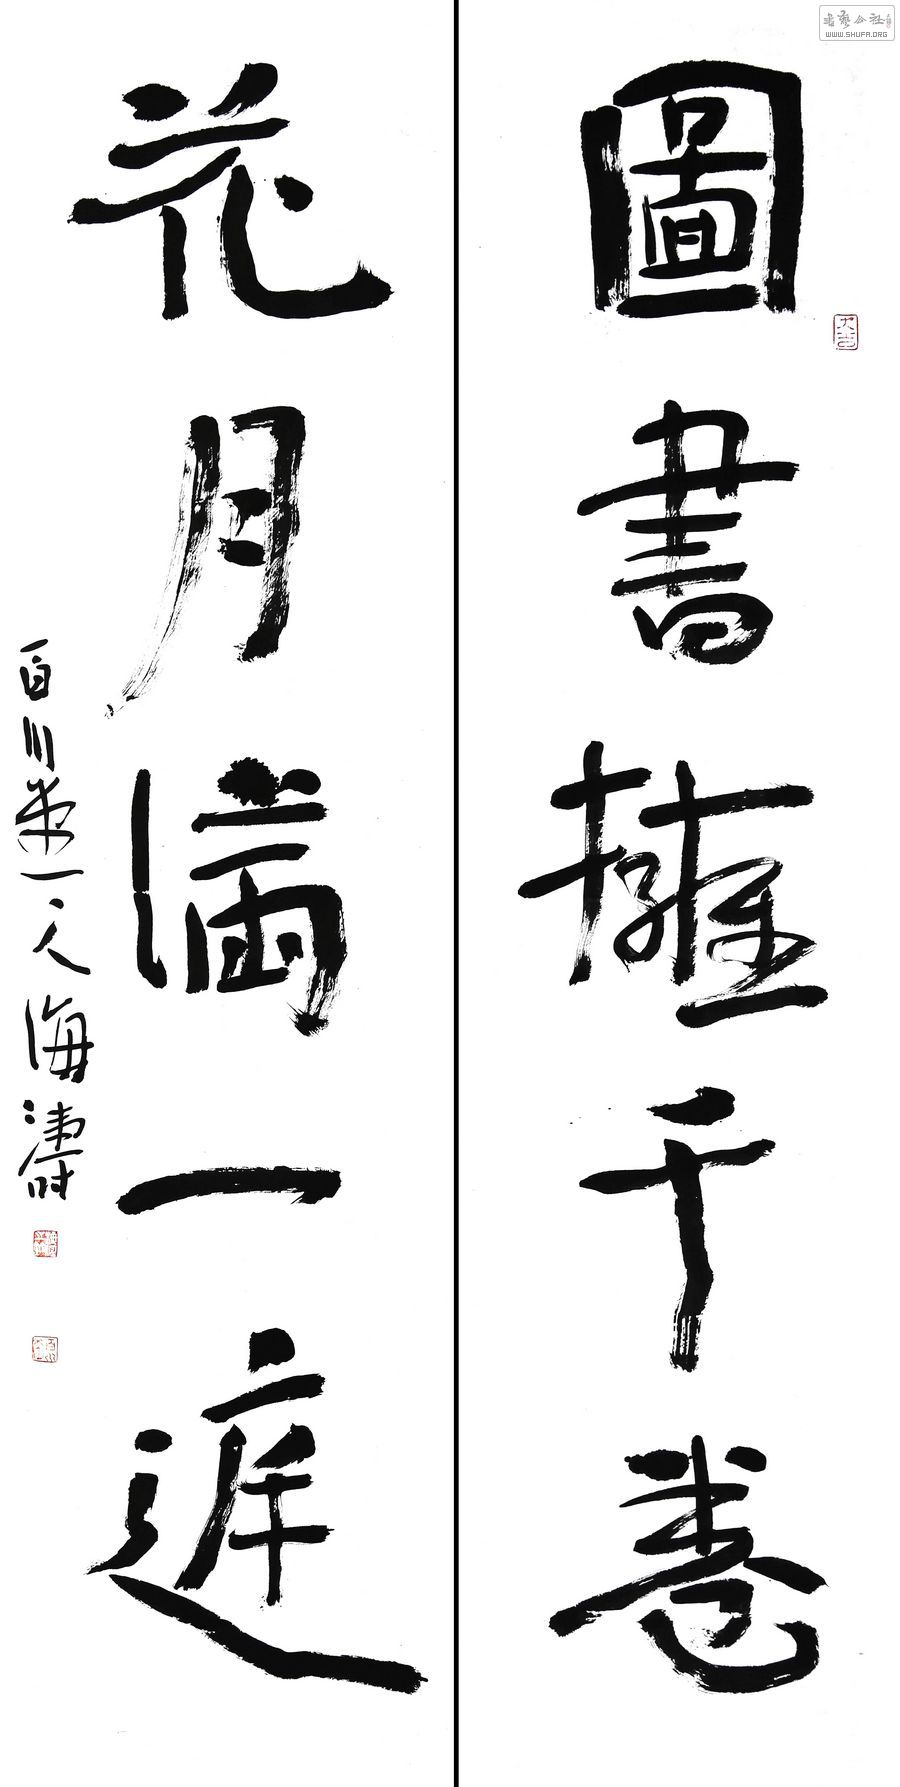 書藝公社
WWW.SHUFA.ORG
圖書擁千卷
花月滿一庭
百川 海濤